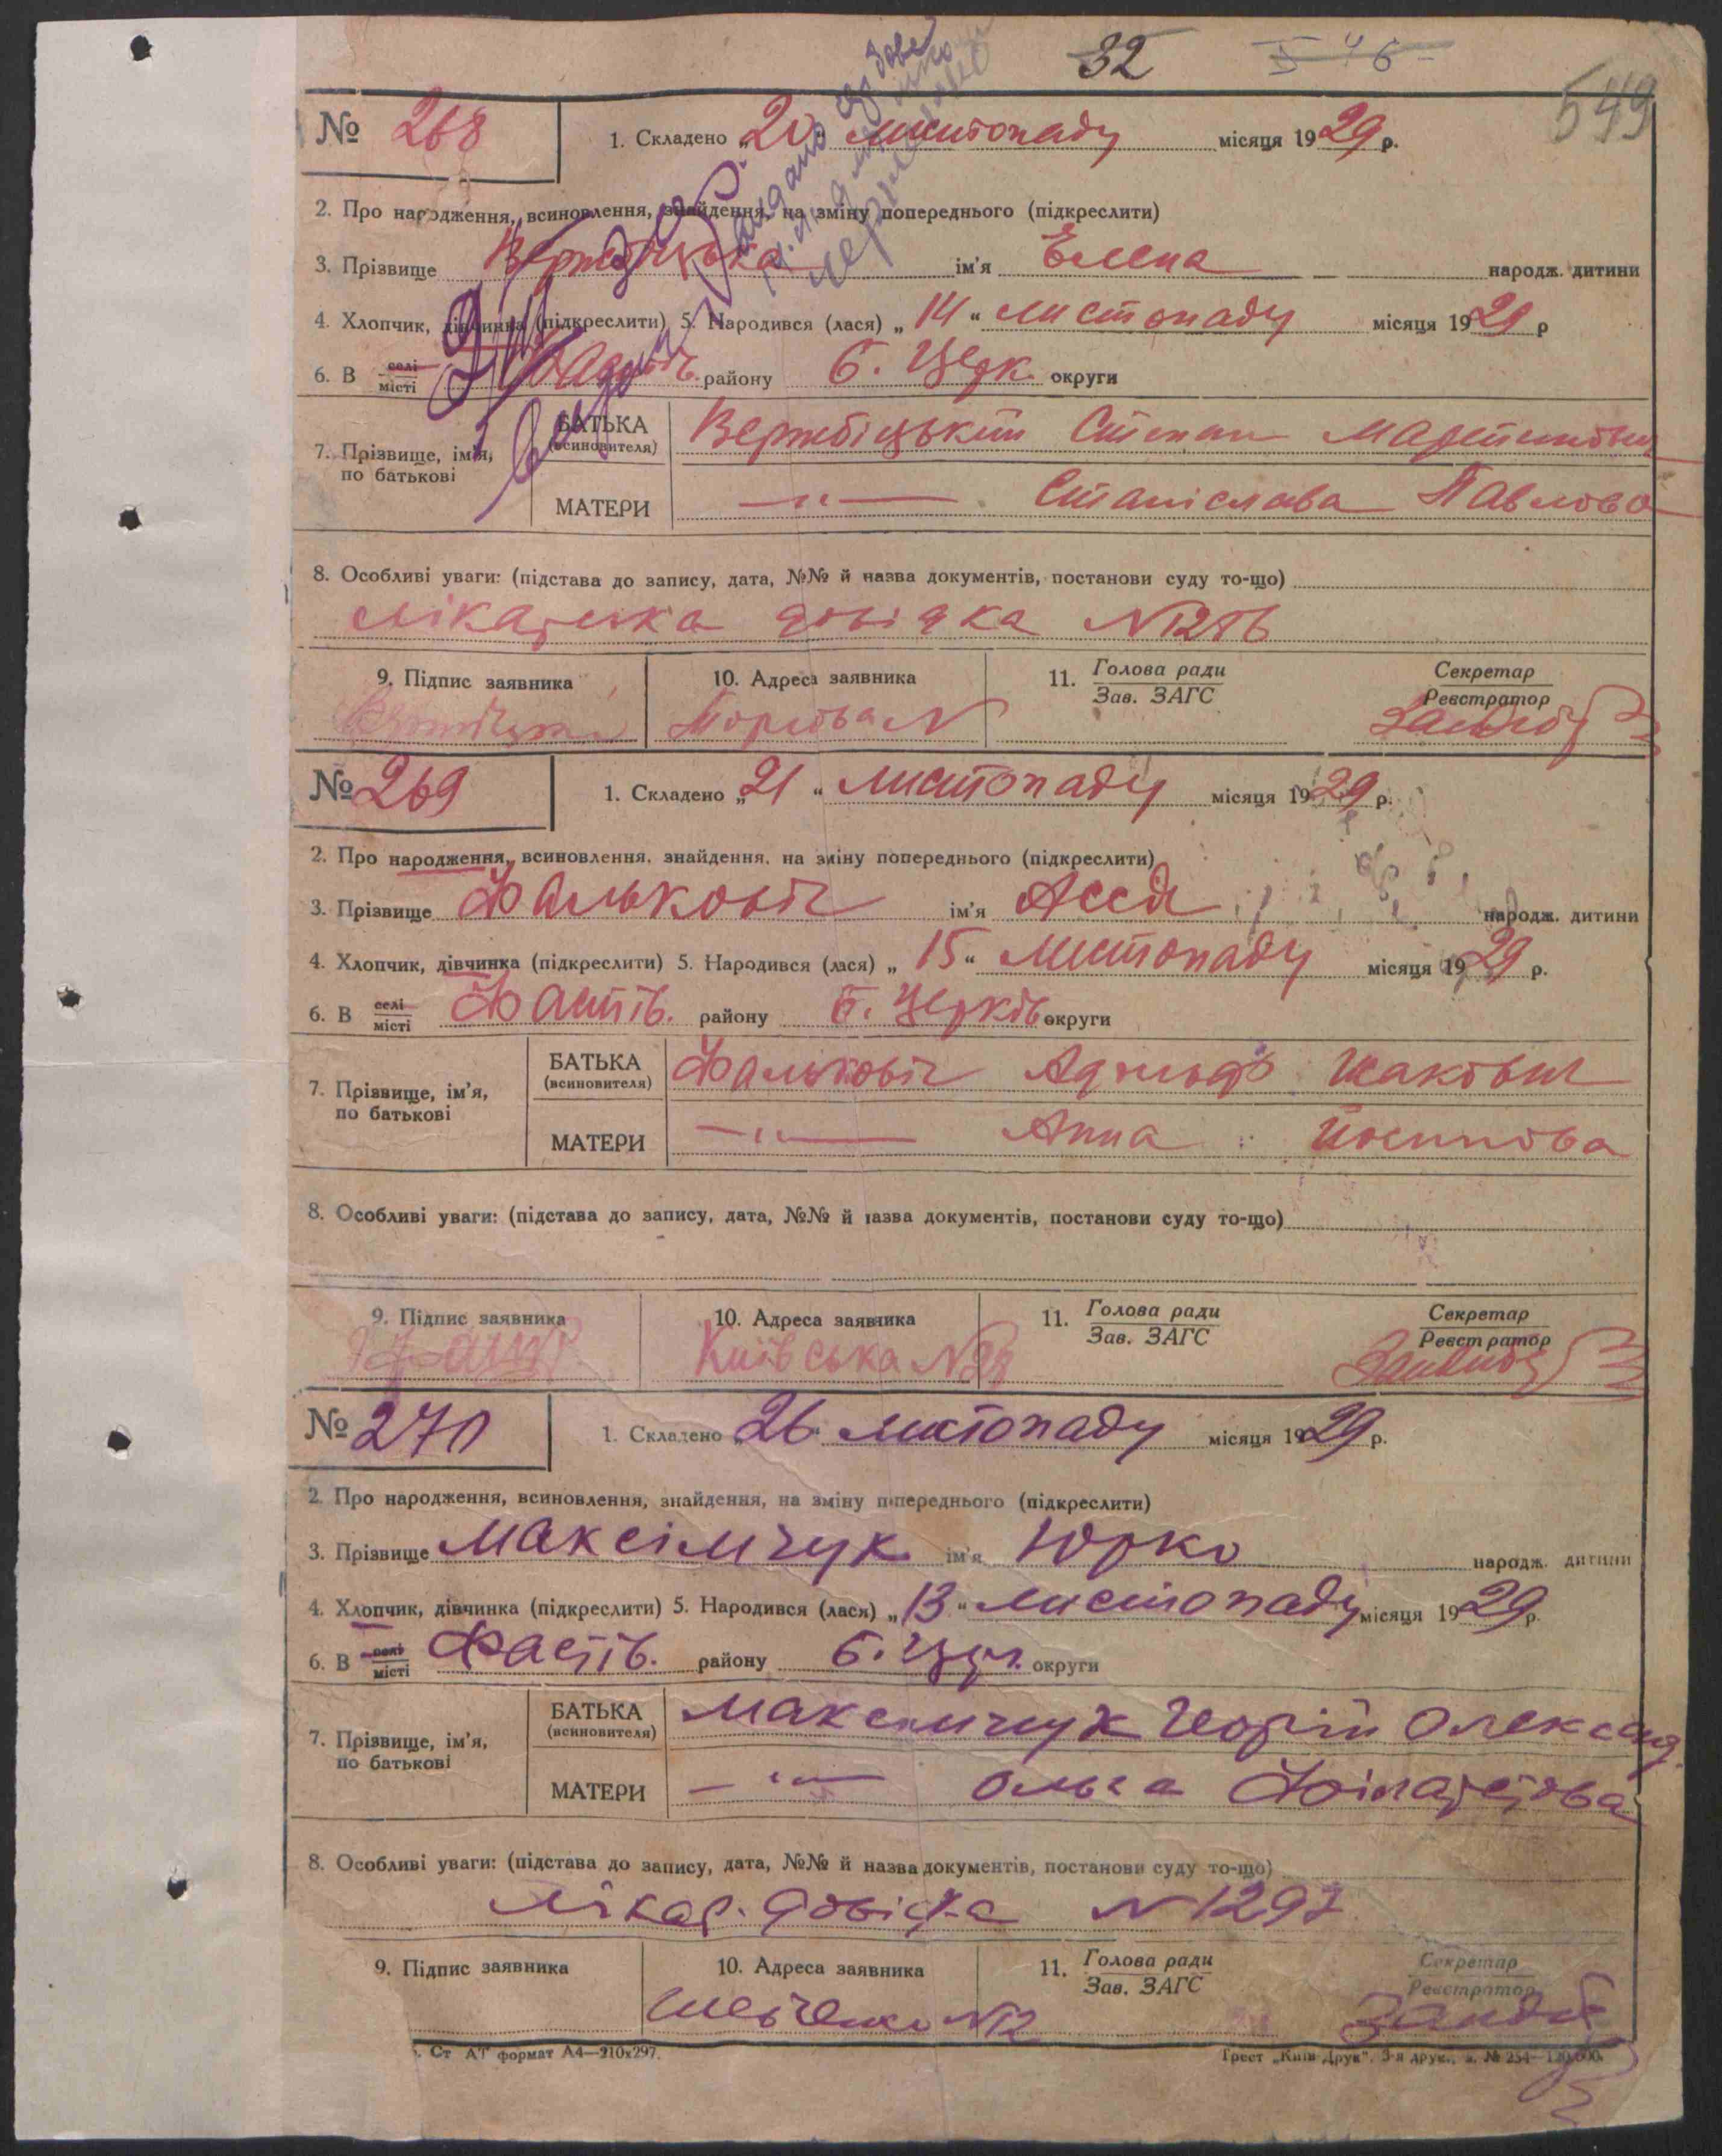 32
549
№ 268 1. Складено „20“ листопаду місяця 1929 р.
2. Про народження, всиновлення, знайдення, на зміну попереднього (підкреслити)
3. Прізвище Вержбіцька ім'я Елена народж. дитини
4. Хлопчик, дівчинка (підкреслити) 5. Народився (лася) „14“ листопаду місяця 1929 р
6. В селі місті району Б. Церк. округи
7. Прізвище, ім'я, по батькові
БАТЬКА (всиновителя) Вержбіцький Степан Мартинович
МАТЕРИ —"— Станіслава Павлова
8. Особливі уваги: (підстава до запису, дата, №№ й назва документів, постанови суду то-що)
лікарська довідка N
9. Підпис заявника 10. Адреса заявника 11. Голова ради Зав. ЗАГС Секретар Реєстратор
№ 269 1. Складено „21“ листопаду місяця 1929 р.
2. Про народження, всиновлення, знайдення, на зміну попереднього (підкреслити)
3. Прізвище Фальковіч ім'я Ассд народж. дитини
4. Хлопчик, дівчинка (підкреслити) 5. Народився (лася) „15“ листопаду місяця 1929 р.
6. В селі місті Фастів. району Б. Церків округи
7. Прізвище, ім'я, по батькові
БАТЬКА (всиновителя) Фальковіч Адольф Ісакович
МАТЕРИ —"— Анна Йосипова
8. Особливі уваги: (підстава до запису, дата, №№ й назва документів, постанови суду то-що)
9. Підпис заявника 10. Адреса заявника 11. Голова ради Зав. ЗАГС Секретар Реєстратор
Київська N
№ 270 1. Складено „26“ листопаду місяця 1929 р.
2. Про народження, всиновлення, знайдення, на зміну попереднього (підкреслити)
3. Прізвище Максімчук ім'я Юрко народж. дитини
4. Хлопчик, дівчинка (підкреслити) 5. Народився (лася) „13“ листопаду місяця 1929 р.
6. В селі місті Фастів. району Б. Церк. округи
7. Прізвище, ім'я, по батькові
БАТЬКА (всиновителя) Максимчук Георгій Олександ.
МАТЕРИ —"— Ольга Філаретова
8. Особливі уваги: (підстава до запису, дата, №№ й назва документів, постанови суду то-що)
Лікар. довідка N 1297
9. Підпис заявника 10. Адреса заявника 11. Голова ради Зав. ЗАГС Секретар Реєстратор
Шевченко N12
Ст АТ формат А4—210x297. Трест „Київ-Друк“. 3-я друк., з. № 254—